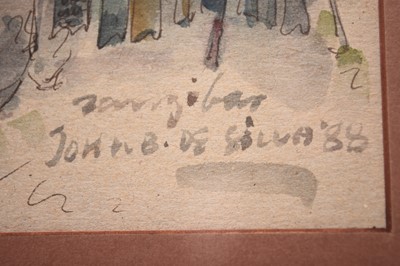 zanzibar
JOHN B. DE SILVA '88